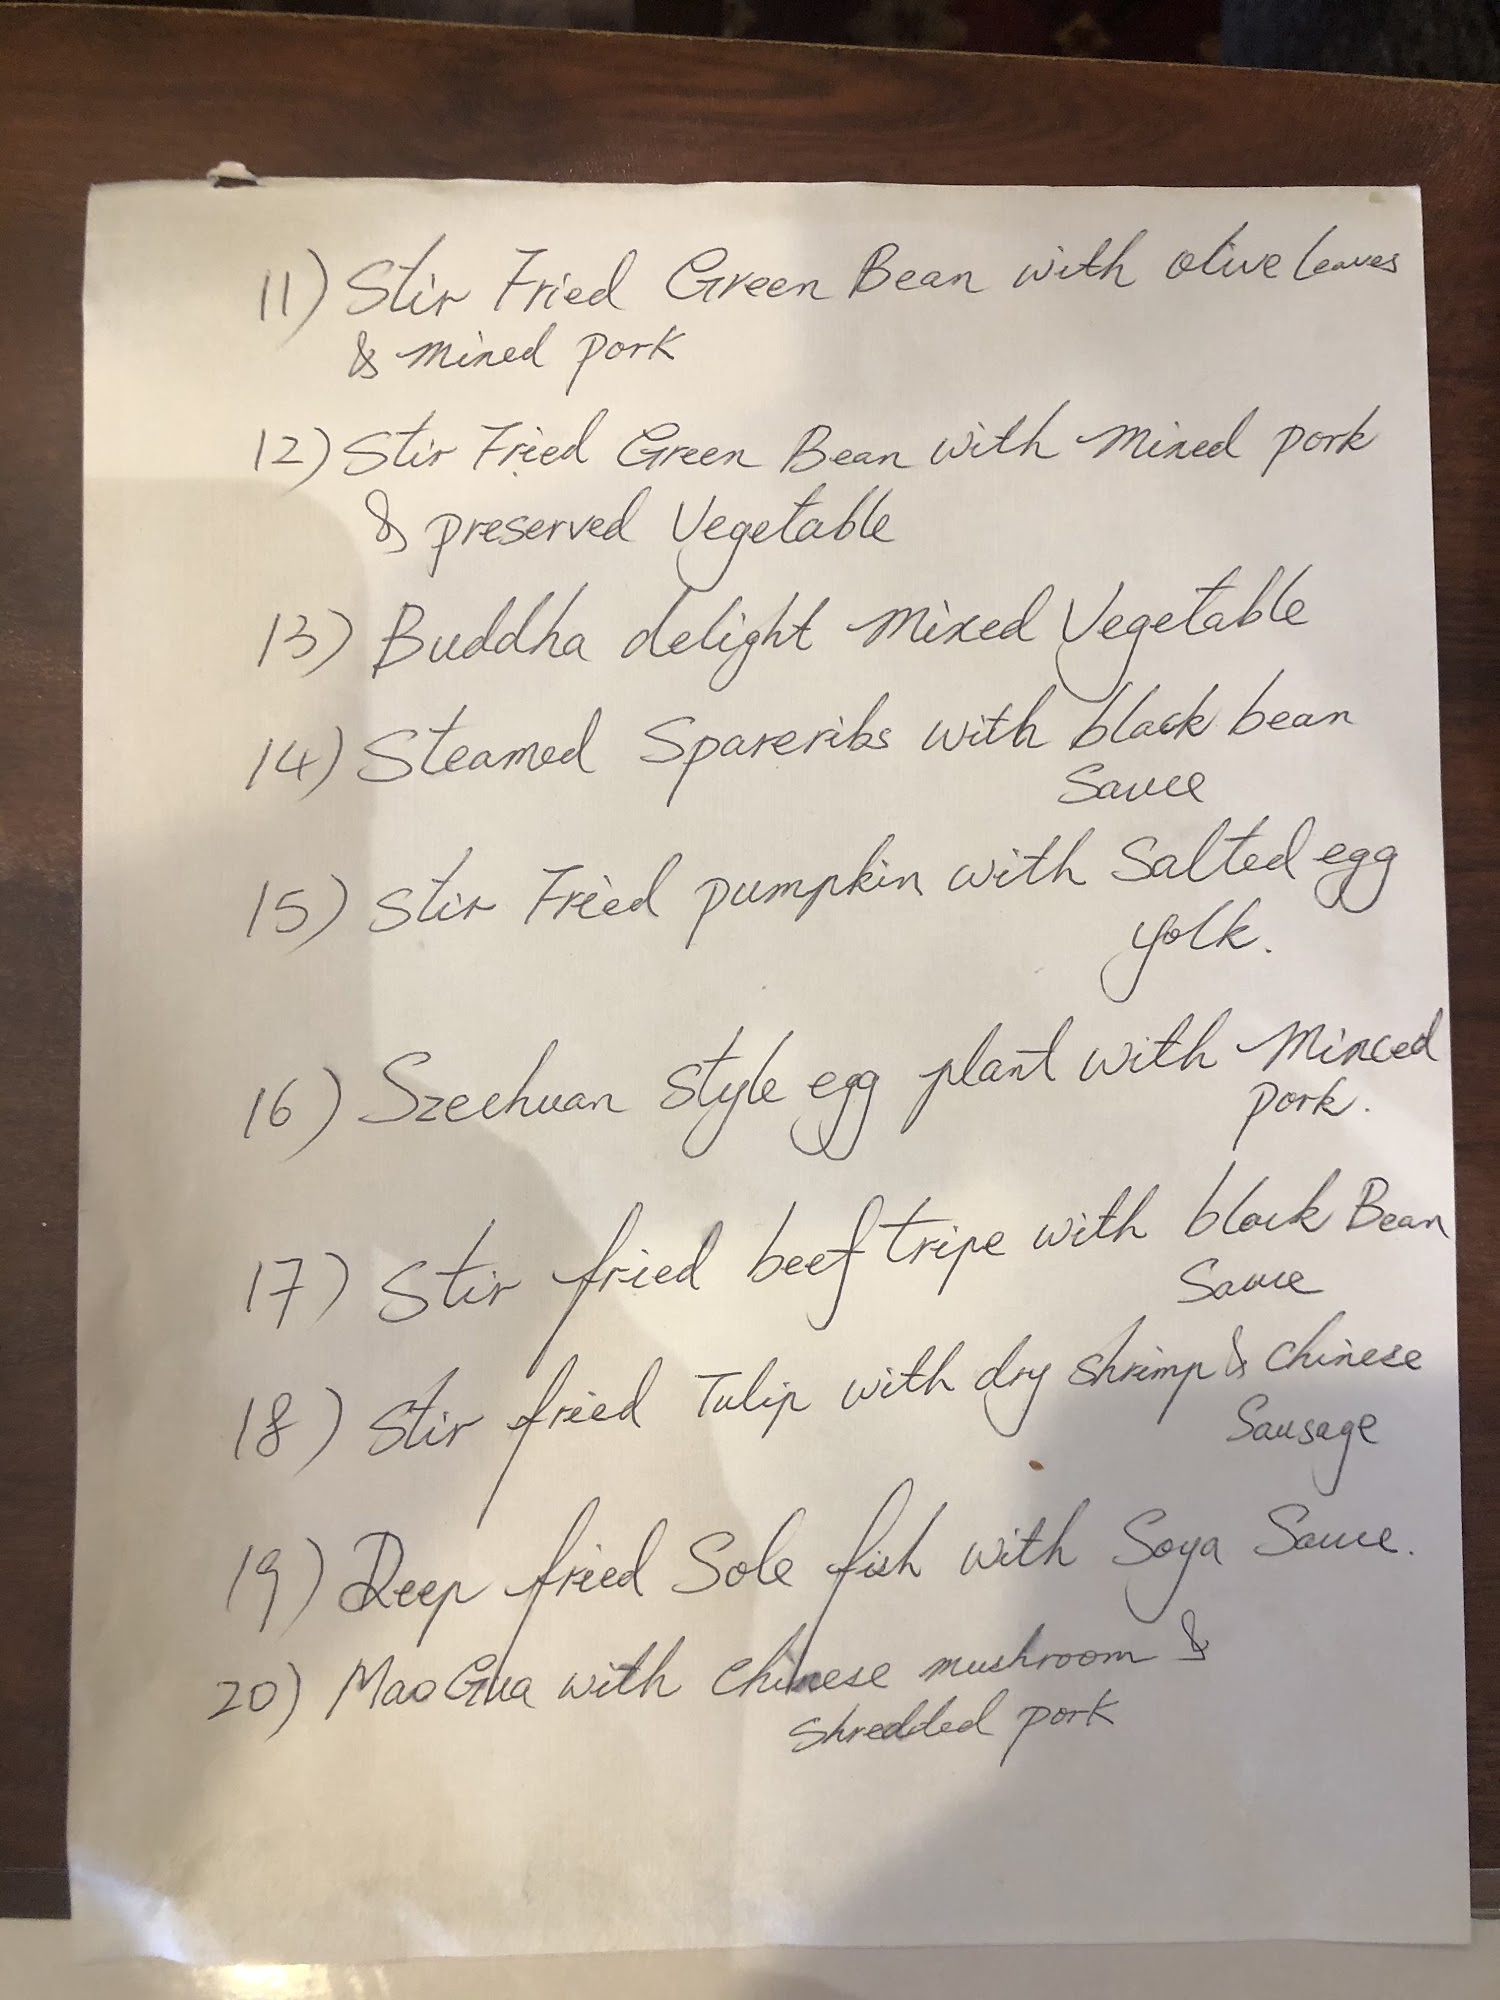 11) Stir Fried Green Bean with olive leaves
& mixed pork
12) Stir Fried Green Bean with mixed pork
& preserved Vegetable
13) Buddha delight mixed Vegetable
14) Steamed Spareribs with black bean
Sauce
15) Stir Fried pumpkin with Salted egg
yolk.
16) Szechuan Style egg plant with Minced
pork.
17) Stir fried beef tripe with black Bean
Sauce
18) Stir fried Tulip with dry shrimp & chinese
Sausage
19) Deep fried Sole fish with Soya Sauce.
20) Mao Gua with Chinese mushroom &
Shredded pork